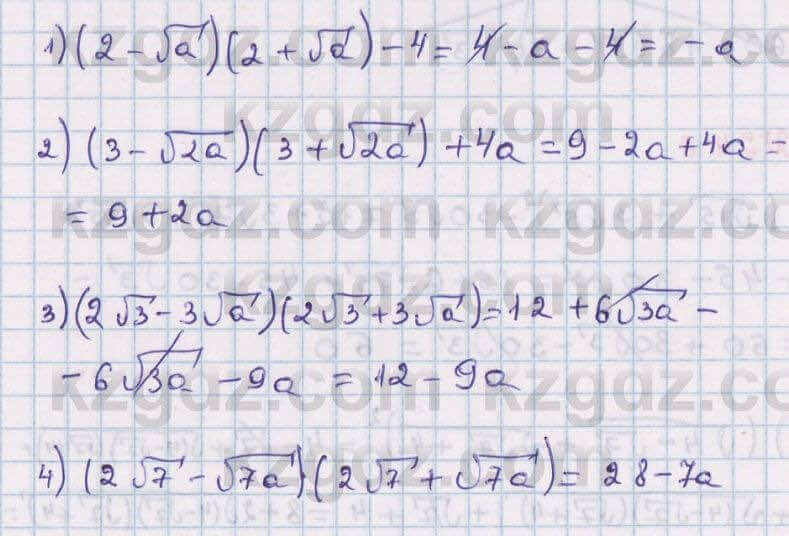 1) (2 - √a)(2 + √a) - 4 = 4 - a - 4 = - a
kzgdz.com
2) (3 - √2a)(3 + √2a) + 4a = 9 - 2a + 4a =
= 9 + 2a
kzgdz.com kzgdz.com
3) (2√3 - 3√a)(2√3 + 3√a) = 12 + 6√3a -
- 6√3a - 9a = 12 - 9a
kzgdz.com kzgdz.com
4) (2√7 - √7a)(2√7 + √7a) = 28 - 7a